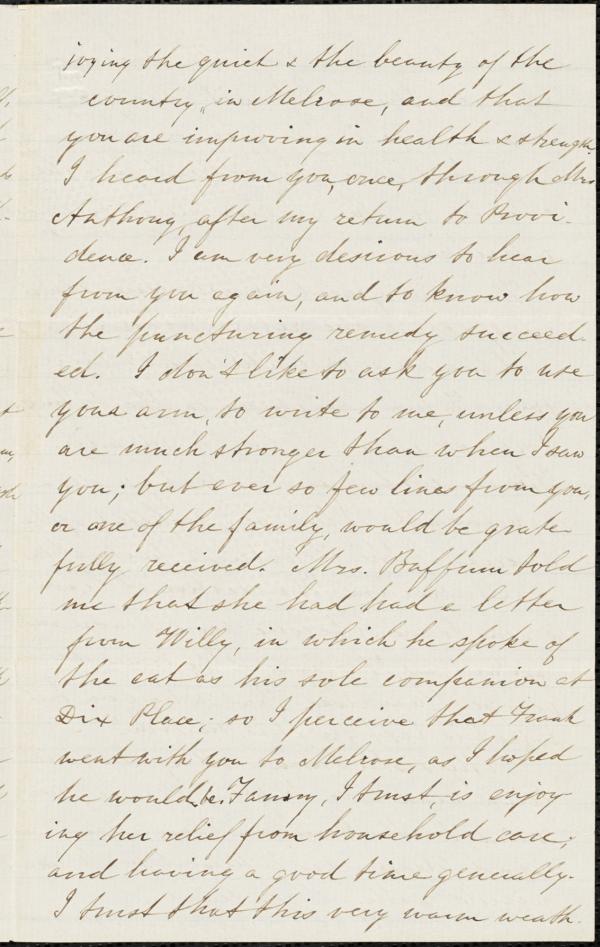 joying the quiet & the beauty of the
country, in Melrose, and that
you are improving in health & strength.
I heard from you, once, through Mrs
Anthony, after my return to Provi-
dence. I am very desirous to hear
from you again, and to know how
the puncturing remedy succeed-
ed. I don't like to ask you to use
your arm, to write to me, unless you
are much stronger than when I saw
you; but ever so few lines from you,
or one of the family, would be grate
fully received. Mrs. Buffum told
me that she had had a letter
from Willy, in which he spoke of
the cat as his sole companion at
Dix Place; so I perceive that Frank
went with you to Melrose, as I hoped
he would. Fanny, I trust, is enjoy
ing her relief from household care;
and having a good time generally.
I trust that this very warm weath-